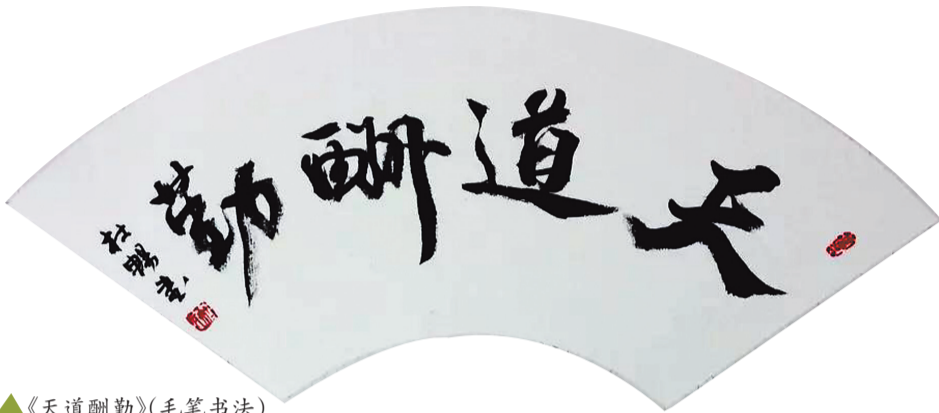 天道酬勤
杜暘书
《天道酬勤》(毛笔书法)